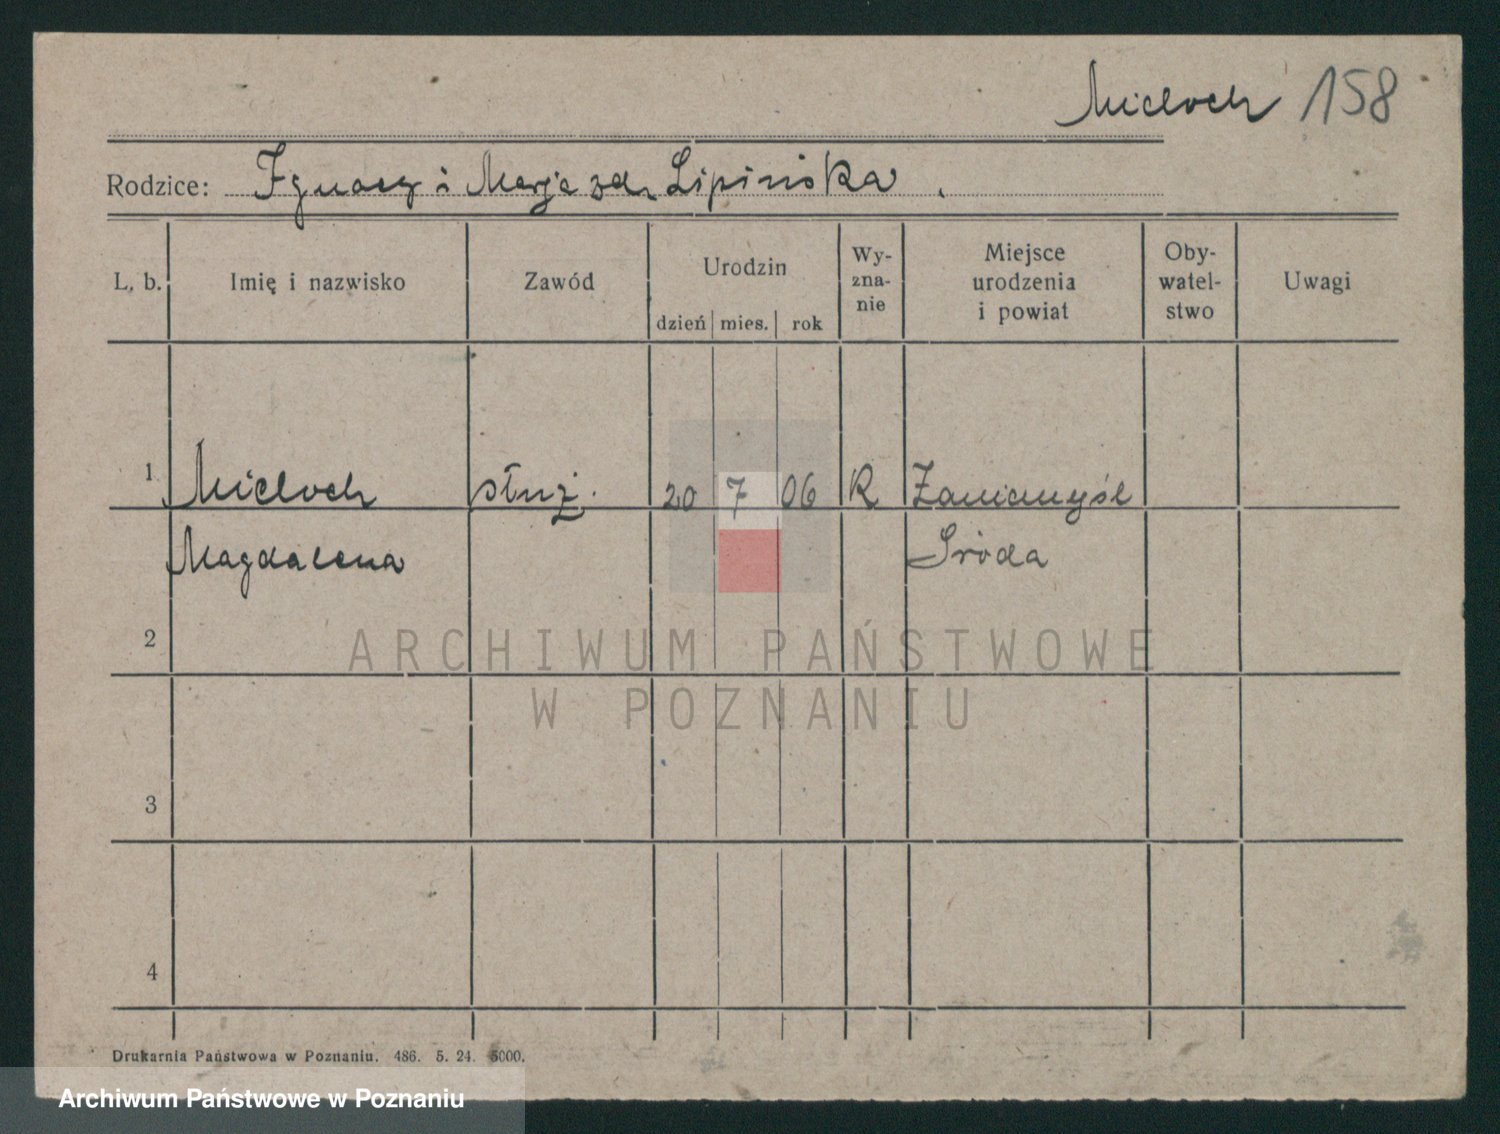 Micloch 158
Rodzice: Ignacy i Marja zd. Lipińska .
L. b. Imię i nazwisko Zawód Urodzin dzień mies. rok Wy-zna-nie Miejsce urodzenia i powiat Oby-watel-stwo Uwagi
1 Micloch służ. 20 7 06 R Zaniemyśl
Magdalena Środa
2
ARCHIWUM PAŃSTWOWE
W POZNANIU
3
4
Drukarnia Państwowa w Poznaniu. 486. 5. 24. 5000.
Archiwum Państwowe w Poznaniu